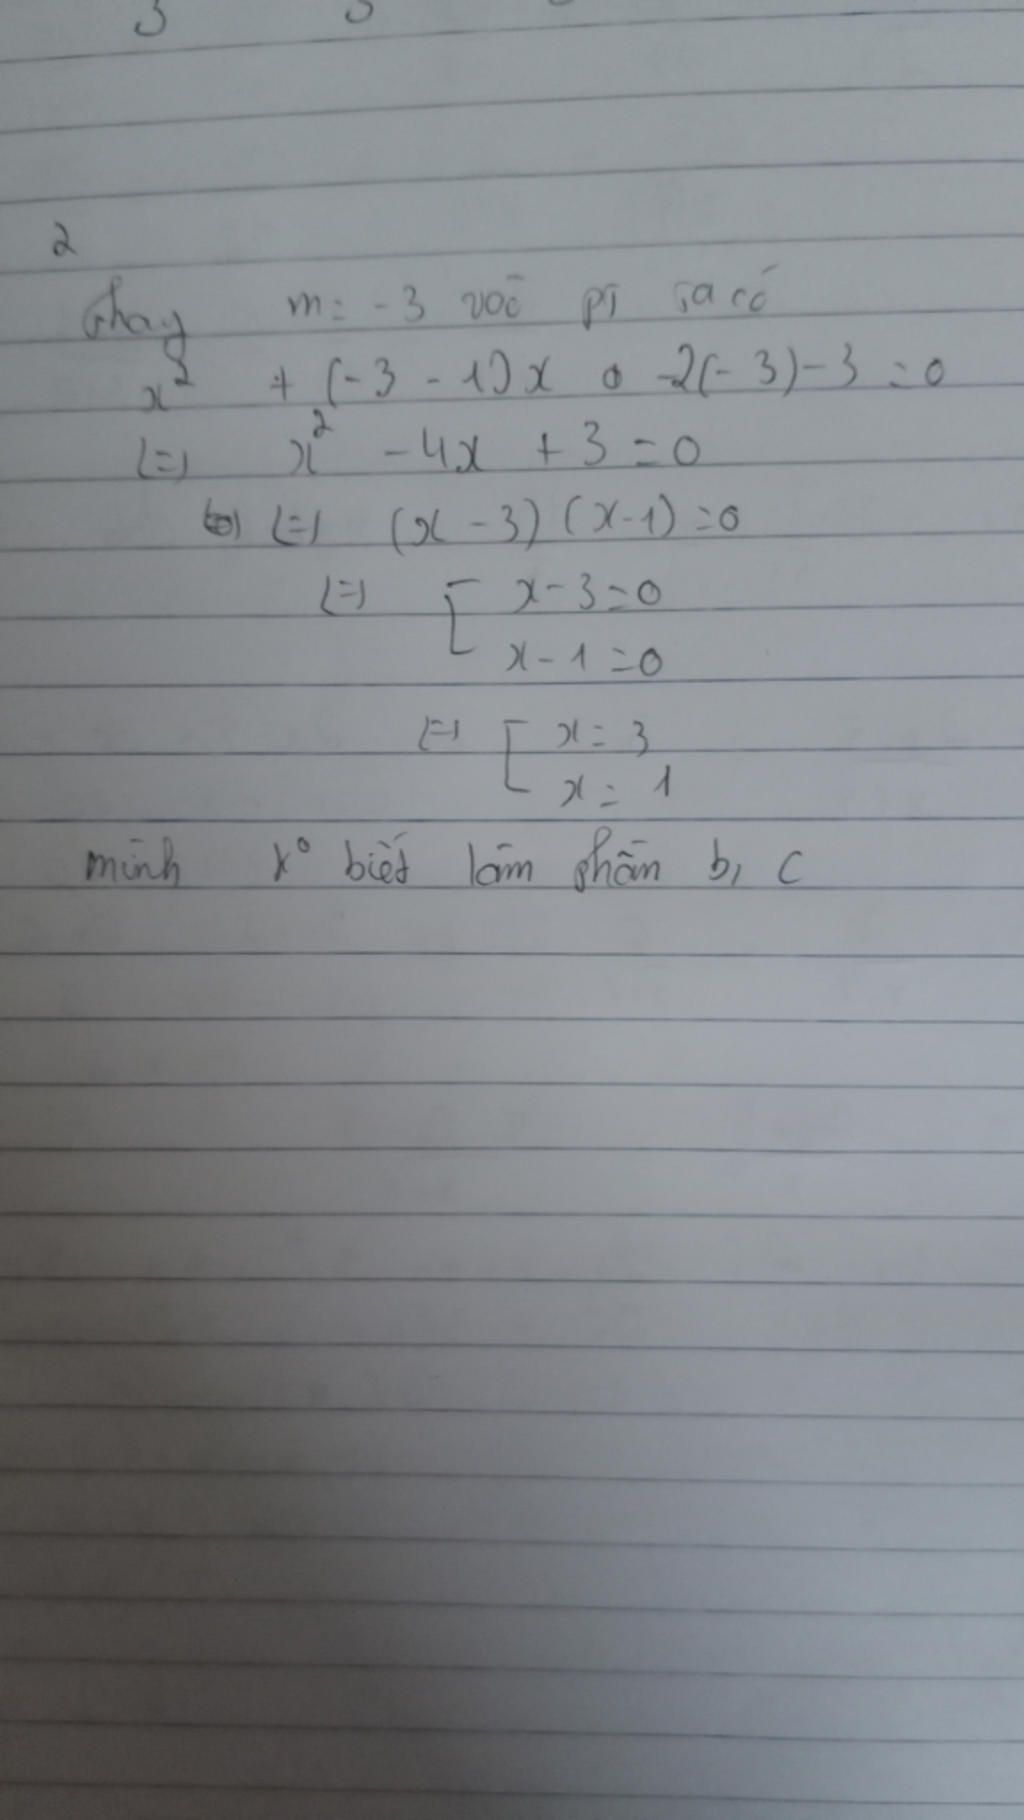 2
Thay m = -3 vào pt ta có
x² + (-3 - 1)x -2(-3) - 3 = 0
(=) x² - 4x + 3 = 0
(=) (x - 3) (x - 1) = 0
(=) [ x - 3 = 0
x - 1 = 0
(=) [ x = 3
x = 1
mình k° biết làm phần b, c